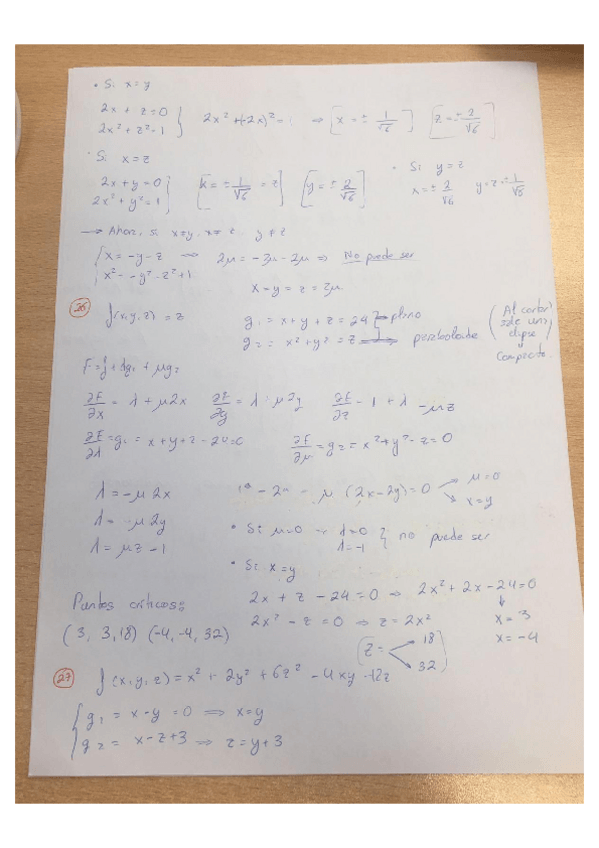 • Si x=y
2x + z = 0
2x² + z² = 1 } 2x² + (-2x)² = 1 ⇒ [x = ± 1/√6] [z = ± 2/√6]
· Si x=z
2x + y = 0
2x² + y² = 1 } [x = ± 1/√6 = z] [y = ± 2/√6]
• Si y=z
x = ± 2/√6 y = z = ± 1/√6
→ Ahora, si x≠y, x≠z y≠z
{ x = -y - z ⇒ 2μ = -2μ - 2μ ⇒ No puede ser
x² = -y² - z² + 1
x = y = z = 2μ
26 f(x,y,z) = z
g₁ = x + y + z = 24 → plano
g₂ = x² + y² = z → paraboloide
(Al cortar sale una elipse y compacto.)
F = f + λg₁ + μg₂
∂F/∂x = λ + μ2x ∂F/∂y = λ + μ2y ∂F/∂z = 1 + λ - μz
∂F/∂λ = g₁ = x + y + z - 24 = 0 ∂F/∂μ = g₂ = x² + y² - z = 0
λ = -μ 2x
λ = -μ 2y
λ = μz - 1
μ (2x - 2y) = 0 → μ = 0
→ x = y
• Si μ=0 → λ=0
λ=-1 } no puede ser
• Si x=y
2x + z - 24 = 0 ⇒ 2x² + 2x - 24 = 0
2x² - z = 0 ⇒ z = 2x²
x = 3
x = -4
(z = 18
32)
Puntos críticos:
(3, 3, 18) (-4, -4, 32)
27 f(x,y,z) = x² + 2y² + 6z² - 4xy - 12z
{ g₁ = x - y = 0 ⇒ x = y
g₂ = x - z + 3 ⇒ z = y + 3